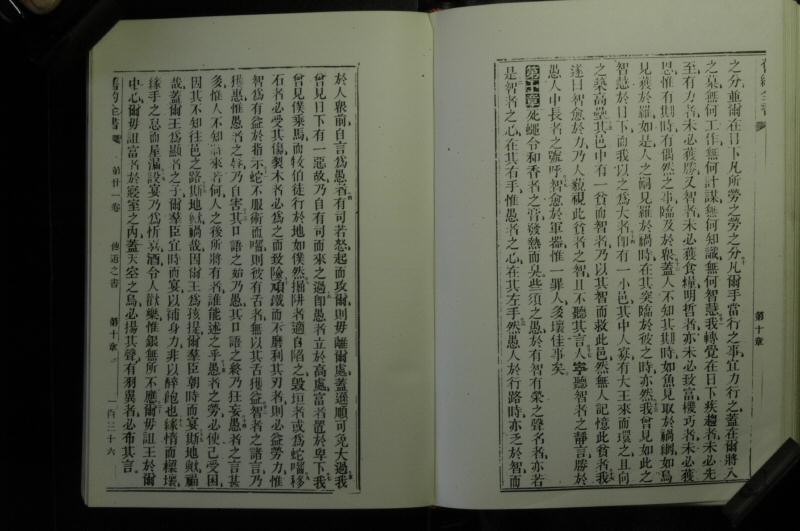 之分並爾在日下凡所勞之勞之分凡爾手當行之事宜力行之蓋在爾將入
之墓無何工作無何計謀無何知識無何智慧我轉覺在日下疾趨者未必先
至有力者未必獲勝又智者未必獲食糧明哲者亦未必致富機巧者未必獲
恩惟有期時有偶然之事臨及於衆蓋人不知其期時如魚見取於禍網如鳥
見獲於羅如是人之嗣見羅於禍時在其突臨於彼之時亦然我曾見如此之
智慧於日下而我以之為大者即有一小邑其中人寡有大王來而環之且向
之築高壘其邑中有一貧而智者乃以其智而救此邑然無人記憶此貧者我
遂曰智愈於力乃人藐視此貧者之智且不聽其言人寧聽智者之靜言勝於
愚人中長者之號呼智愈於軍器惟一罪人多壞佳事矣
第十章死蠅令和香者之膏發熱而臭些須之愚於有智有榮之聲名者亦若
是智者之心在其右手惟愚者之心在其左手然愚人於行路時亦乏於智而
第十章
於人衆前自言為愚者有司若怒起而攻爾則毋離爾處蓋遜順可免大過我
曾見日下有一惡故乃自有司而來之過即愚者立於高處富者置於卑下我
曾見僕乘馬而牧伯徒行於地如僕然掘阱者適自陷之毀垣者或為蛇嚙移
石者必受其傷製木者必為之而致險頑鐵而不磨利其刃者則必益勞力惟
智為有益於指示蛇不服術而嚙則彼有舌者無以其舌獲益智者之諸言乃
獲惠惟愚者之唇乃自害其口語之始乃愚其口語之終乃狂妄愚者之言甚
多惟人不知將來若何人之後所將有者誰能述之乎愚者之勞必使己受困
因其不知往邑之路斯地歟禍哉因爾王為孩提爾羣臣朝時而宴斯地歟福
哉蓋爾王為顯者之子爾羣臣宜時而宴以補身力非以醉飽也緣惰而樑壞
緣手之怠而屋漏設宴乃為忻喜酒令人歡樂惟銀無所不應爾毋詛王於爾
中心爾毋詛富者於寢室之內蓋天空之鳥必揚其聲有羽翼者必布其言
舊約全書
第廿一卷
傳道之書
第十章
一百三十六